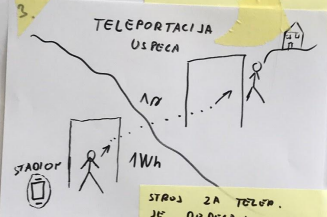 3.
TELEPORTACIJA
USPEŠA
1Wh
STADION
STROJ ZA TELEP.
JE